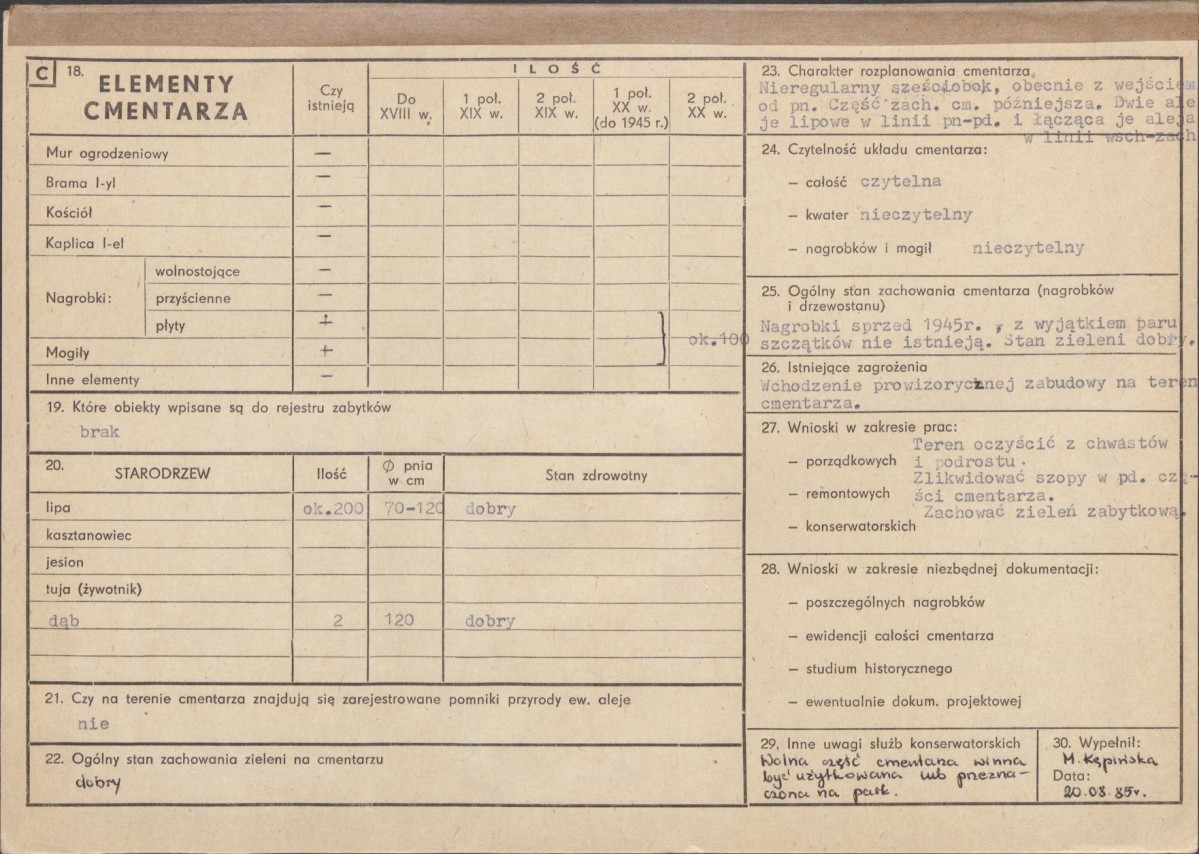 C 18. ELEMENTY CMENTARZA
Czy istnieją
ILOŚĆ
Do XVIII w.
1 poł. XIX w.
2 poł. XIX w.
1 poł. XX w. (do 1945 r.)
2 poł. XX w.
Mur ogrodzeniowy —
Brama l-yl —
Kościół —
Kaplica l-el —
Nagrobki:
wolnostojące —
przyścienne —
płyty +
Mogiły +
ok.100
Inne elementy —
19. Które obiekty wpisane są do rejestru zabytków
brak
20. STARODRZEW Ilość Ø pnia w cm Stan zdrowotny
lipa ok.200 70-120 dobry
kasztanowiec
jesion
tuja (żywotnik)
dąb 2 120 dobry
21. Czy na terenie cmentarza znajdują się zarejestrowane pomniki przyrody ew. aleje
nie
22. Ogólny stan zachowania zieleni na cmentarzu
dobry
23. Charakter rozplanowania cmentarza
Nieregularny sześciobok, obecnie z wejściem
od pn. Część zach. cm. późniejsza. Dwie ale
je lipowe w linii pn-pd. i łącząca je aleja
w linii wsch-zach
24. Czytelność układu cmentarza:
— całość czytelna
— kwater nieczytelny
— nagrobków i mogił nieczytelny
25. Ogólny stan zachowania cmentarza (nagrobków
i drzewostanu)
Nagrobki sprzed 1945r. , z wyjątkiem paru
szczątków nie istnieją. Stan zieleni dobry.
26. Istniejące zagrożenia
Wchodzenie prowizorycznej zabudowy na teren
cmentarza.
27. Wnioski w zakresie prac:
Teren oczyścić z chwastów
— porządkowych i podrostu.
Zlikwidować szopy w pd. czę-
— remontowych ści cmentarza.
Zachować zieleń zabytkową.
— konserwatorskich
28. Wnioski w zakresie niezbędnej dokumentacji:
— poszczególnych nagrobków
— ewidencji całości cmentarza
— studium historycznego
— ewentualnie dokum. projektowej
29. Inne uwagi służb konserwatorskich
Wolna część cmentarza winna
być użytkowana lub przezna-
czona na park.
30. Wypełnił:
M. Kępińska
Data:
20.08.85r.